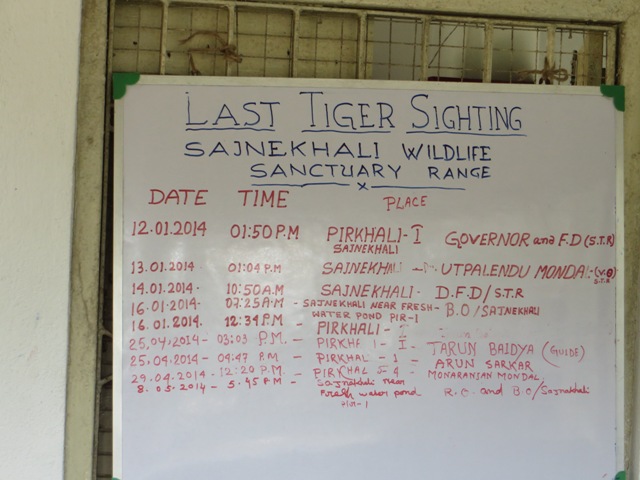 LAST TIGER SIGHTING
SAJNEKHALI WILDLIFE
SANCTUARY RANGE
x
DATE TIME PLACE
12.01.2014 01:50 P.M PIRKHALI-I GOVERNOR and F.D (S.T.R)
SAJNEKHALI
13.01.2014 01:04 P.M SAJNEKHALI UTPALENDU MONDAL
14.01.2014 10:50 A.M SAJNEKHALI D.F.D/S.T.R
16.01.2014- 07:25 A.M - SAJNEKHALI NEAR FRESH- B.O/SAJNEKHALI
WATER POND PIR-1
16.01.2014. 12:34 P.M - PIRKHALI-
25.04.2014- 03:03 P.M. - I - TARUN BAIDYA (GUIDE)
25.04.2014 - 04.47 P.M - PIRKHAL - 1 - ARUN SARKAR
29.04.2014 - 12:20 P.M. - PIRKHAL - 4 - MONARANJAN MONDAL
8.05.2014 - 5.45 PM - Sajnakhali near R.C. and B.O/Sajnakhali
Fresh water pond
PIR-1